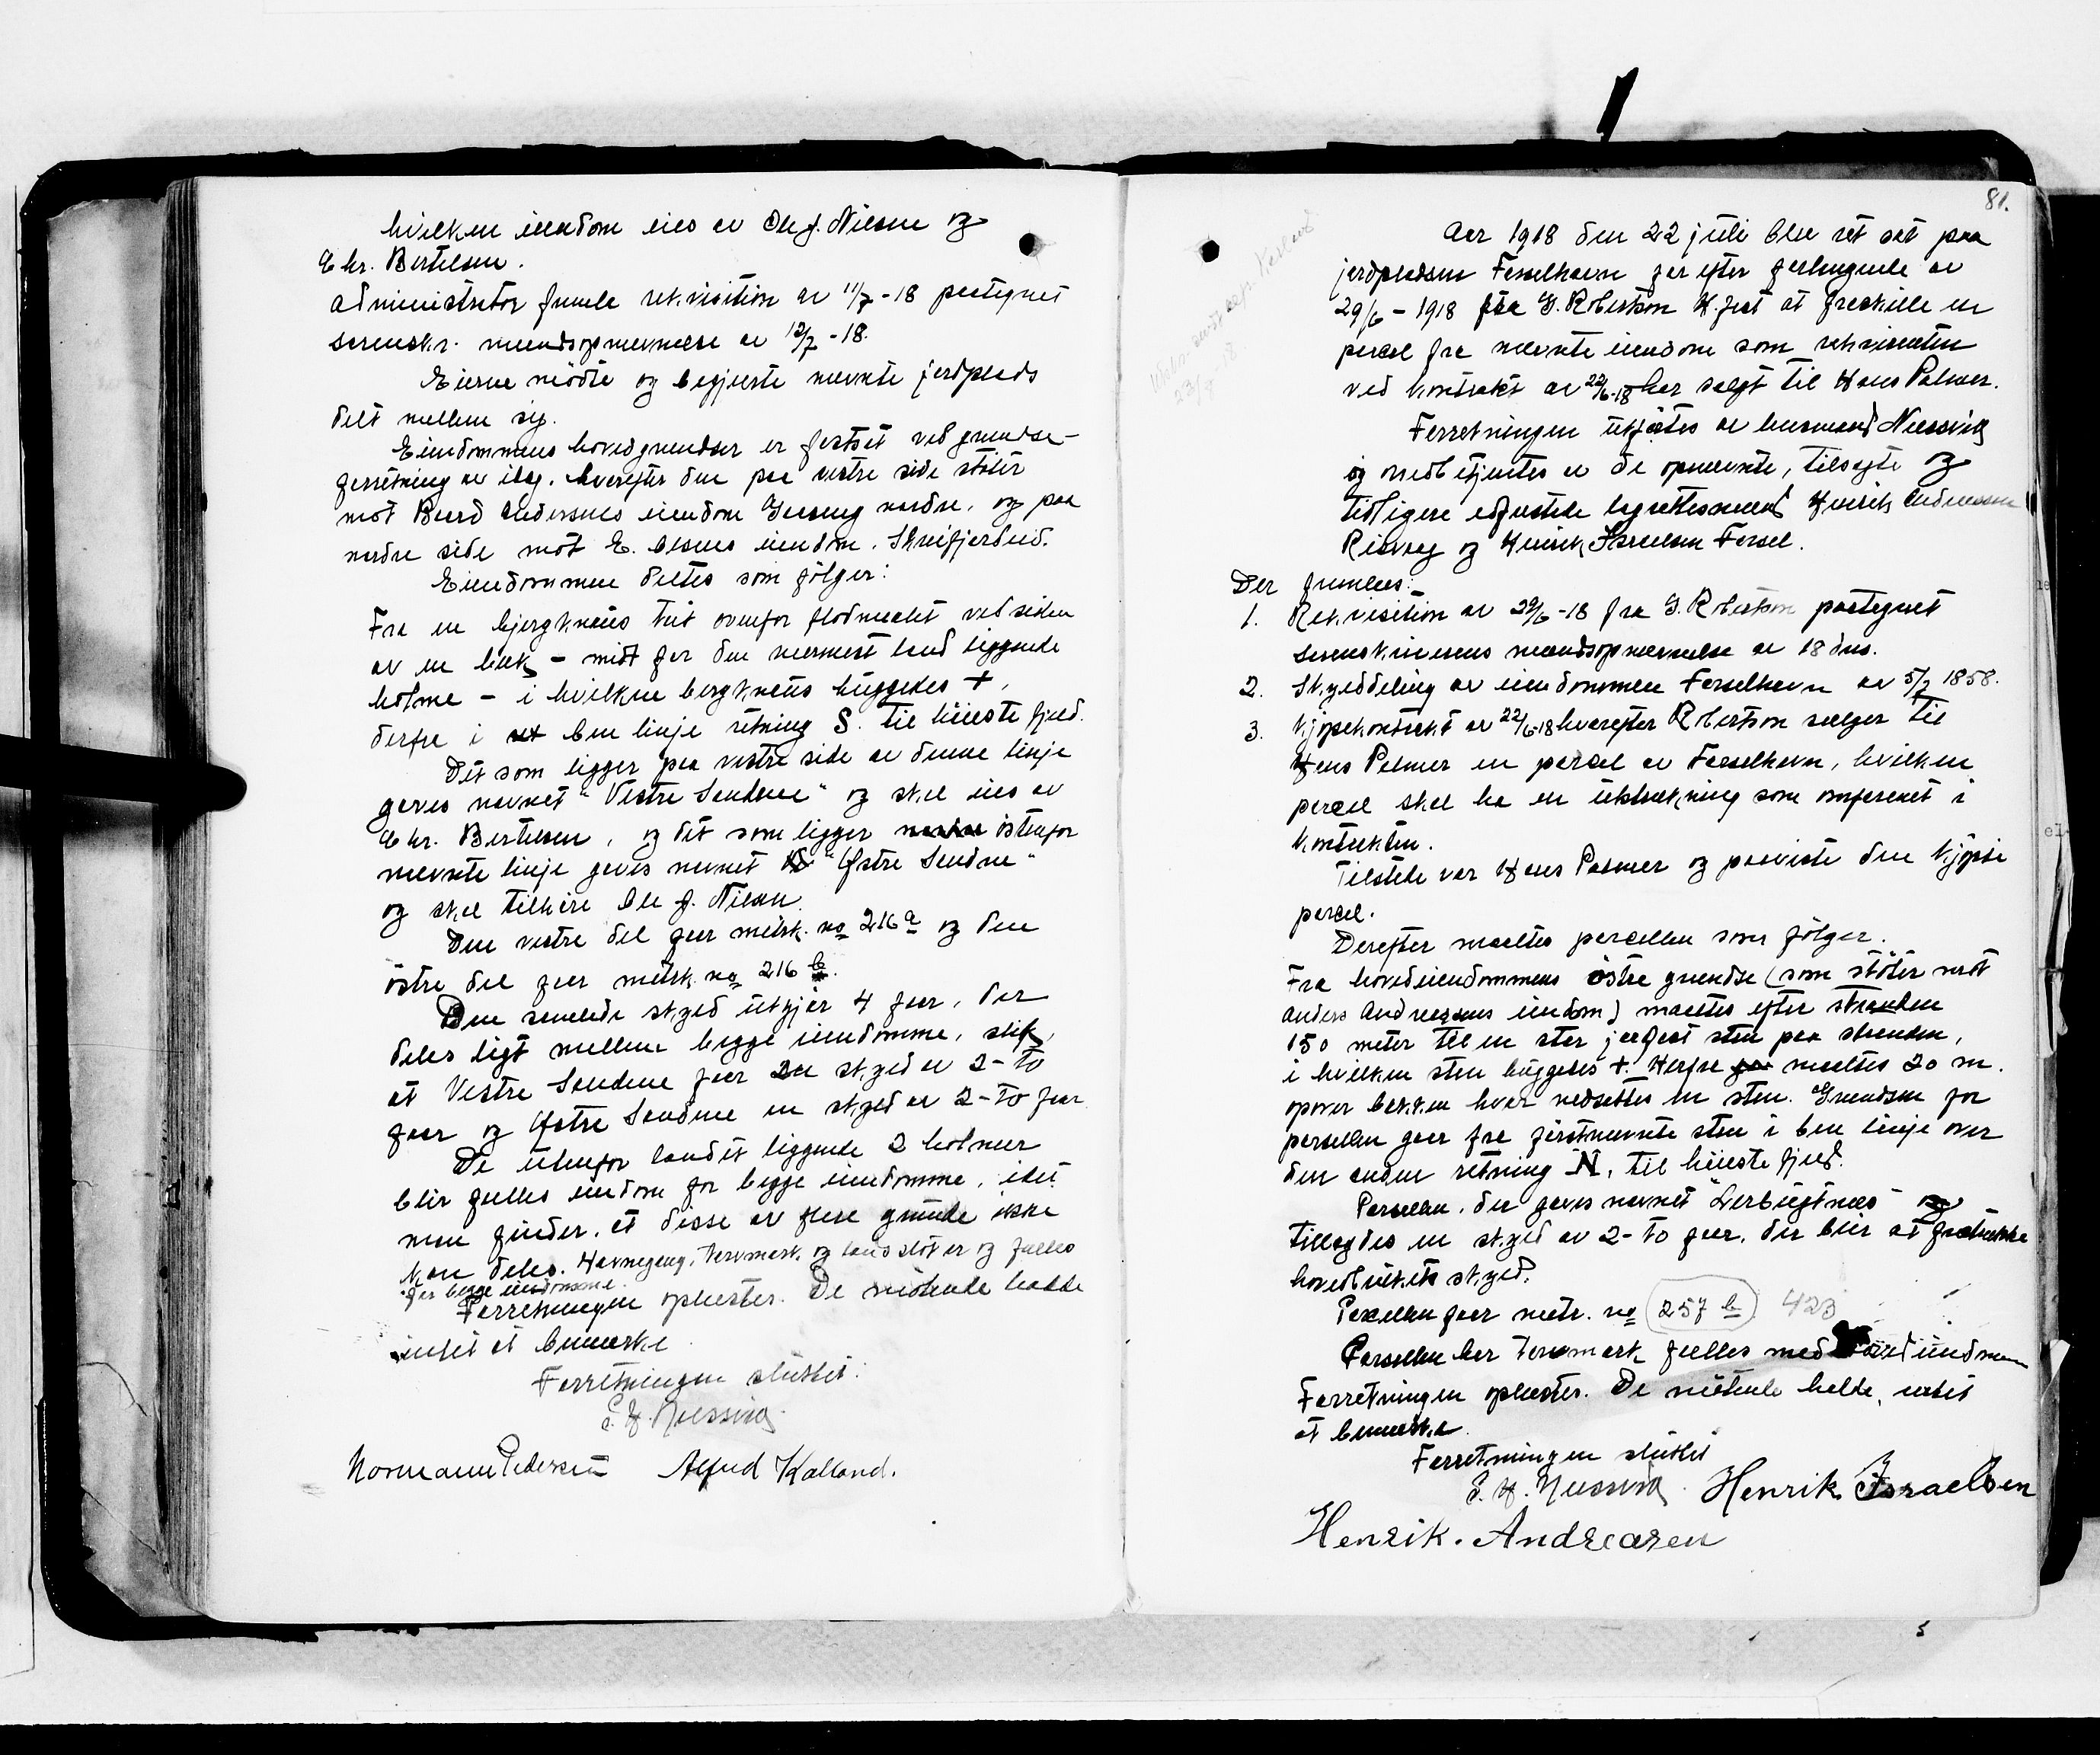 hvilken eiendom eies av Ole J. Nilsen og
Chr. Bertelsen.
Administrator fremla rekvisition av 11/7-18 paategnet
sorenskr. mændsopnævnelse av 12/7-18.
Eierne mödte og begjærte nævnte jordplads
delt mellem sig.
Eiendommens hovedgrændser er fastsat ved grændse-
forretning av idag, hvorefter den paa vestre side stöter
mot Baard Andersens eiendom nordre, og paa
nordre side mot E. Olsens eiendom.
Eiendommen deltes som fölger:
Fra en bjergknaus tæt ovenfor flodmaalet ved siden
av en bæk - midt for den nærmest land liggende
holme - i hvilken bergknaus huggedes +,
derfra i ret ben linje retning S. til höieste fjeld.
Det som ligger paa vestre side av denne linje
gaves navnet "Vestre Sandnes" og skal eies av
Chr. Bertelsen, og det som ligger nordre östenfor
nævnte linje gaves navnet "Östre Sandnes"
og skal tilhöre Ole J. Nilsen.
Den vestre del faar matrk. no 216 a og den
östre del faar matrk. no 216 b.
Den samlede skyld utgjör 4 öre, der
deles likt mellem begge eiendomme, slik,
at Vestre Sandnes faar en skyld av 2-to
öre og Östre Sandnes en skyld av 2-to öre
De utenfor landet liggende 2 holmer
blir fælles eiendom for begge eiendomme, idet
man finder, at disse av flere grunde ikke
kan deles. Havnegang, torvmark og landslot er og fælles
for begge eiendomme.
Forretningen oplæstes. De mötende hadde
intet at bemerke
Forretningen sluttet:
E. H. Nilssing.
Normann Pedersen Alfred Kalland.
81.
23/8-18
Aar 1918 den 22 juli blev ret sat paa
jordpladsen Forselhavn for efter forlangende av
29/6-1918 fra G. Robertson H.fest at fraskille en
parcel fra nævnte eiendom som rekvirenten
ved kontrakt av 22/6-18 har solgt til Hans Palmer.
Forretningen utförtes av lensmand Nilssing
og medbetjentes av de opnævnte, tilsagte og
tidligere edfæstede lagrettesmænd Henrik Andreassen
Risvær og Henrik Israelsen Forsel.
Der fremlaas:
1. Rekvisition av 29/6-18 fra G. Robertson paategnet
sorenskriverens mændsopnævnelse av 18 ds.
2. Skylddeling av eiendommen Forselhavn av 5/7 1858.
3. Kjöpekontrakt av 22/6-18 hvorefter Robertson sælger til
Hans Palmer en parcel av Forselhavn, hvilken
parcel skal ha en utstrækning som omforenet i
kontrakten.
Tilstede var Hans Palmer og paaviste den kjöpte
parcel.
Derefter maaltes parcellen som fölger.
Fra hovedeiendommens östre grændse (som stöter mot
Anders Andreassens eiendom) maaltes efter stranden
150 meter til en stor jordfast sten paa stranden,
i hvilken sten huggedes +. Herfra maaltes 20 m.
opover bakken hvor nedsattes en sten. Grændsen for
parcellen gaar fra förstnævnte sten i ben linje over
den anden retning N. til höieste fjeld.
Parcellen, der gaves navnet og
tillagdes en skyld av 2-to öre, der blir at fratrække
hovedbrukets skyld.
Parcellen faar matr. no 257 b 423
Parcellen har torvmark fælles med hovedeiendommen
Forretningen oplæstes. De mötende hadde intet
at bemerke
Forretningen sluttet
E. H. Nilssing. Henrik Israelsen
Henrik. Andreasen